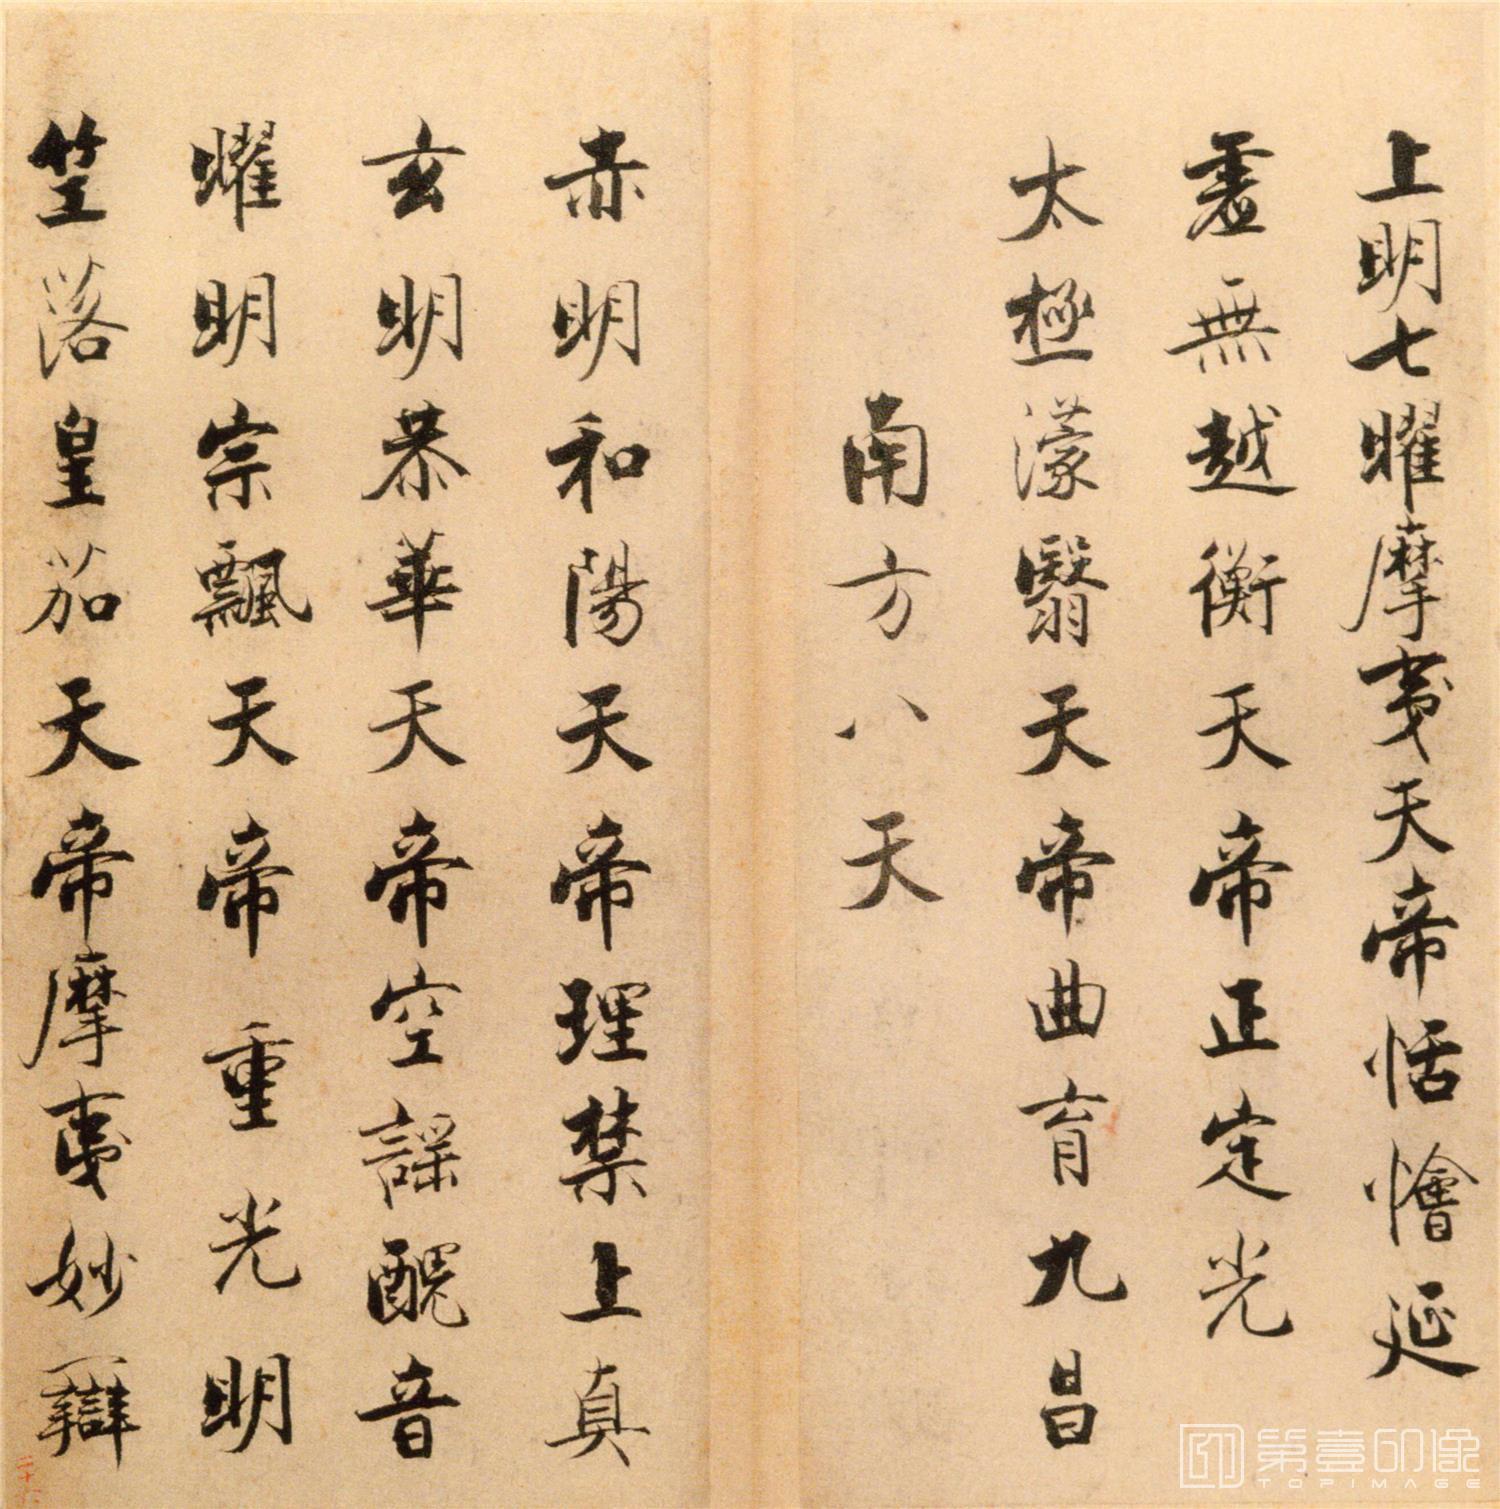 上明七曜摩夷天帝恬懀延
虛無越衡天帝正定光
太極濛翳天帝曲育九昌
南方八天
赤明和陽天帝理禁上真
玄明恭華天帝空謠醜音
曜明宗飄天帝重光明
笁落皇笳天帝摩夷妙辯
二十六
第壹印像
TOPIMAGE